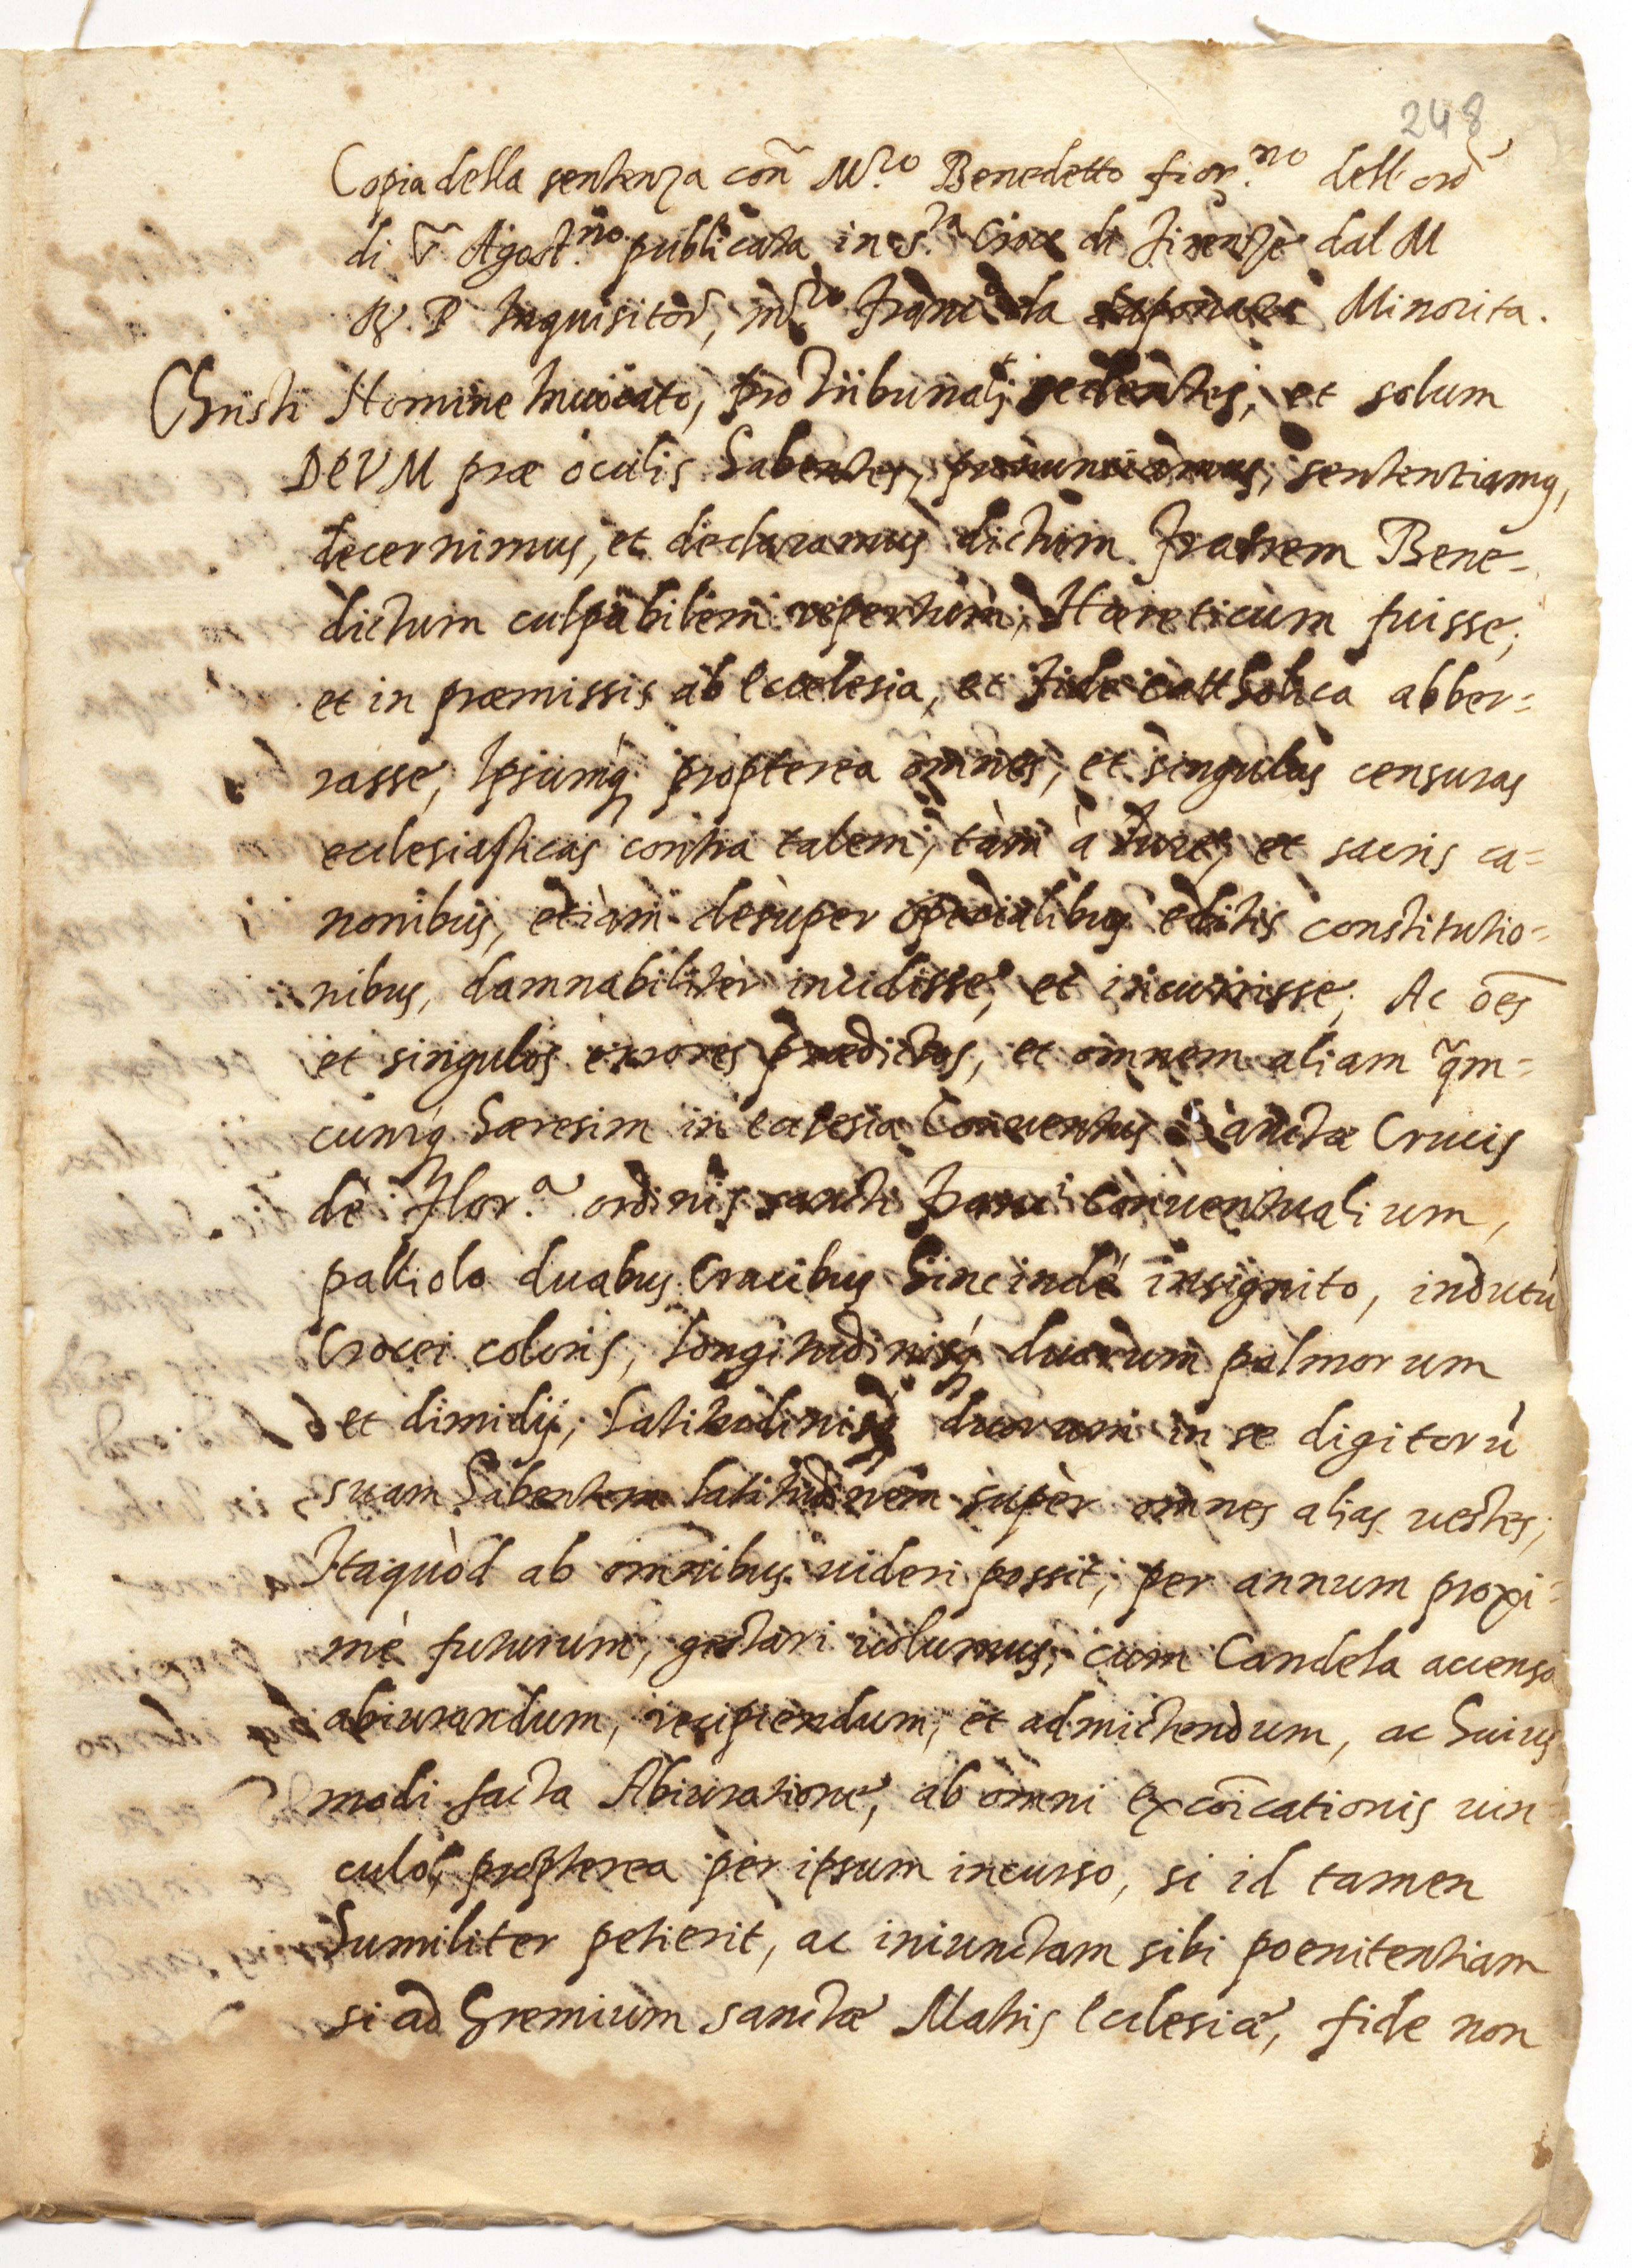 248
Copia della sentenza con̄ M.ro Benedetto fior.no dell' ord
di S. Agost.no publicata in s.ta Croce di Firenze dal M
R. P Inquisitor, m.ro Franc.o da Minorita.
Christi Nomine Inuocato, pro Tribunali sedentes, et solum
DEVM præ oculis habentes, pronunciamus, sententiamq,
decernimus, et declaramus dictum Fratrem Bene-
dictum culpabilem repertum, Hæreticum fuisse,
et in præmissis ab Ecclesia, et Fide cattholica abber=
rasse, Ipsumq propterea omnes, et singulas censuras
ecclesiasticas contra talem, tàm à Iure, et sacris ca=
nonibus, etiàm desùper specialibus editis constitutio=
nibus, damnabilitèr incidisse, et incurrisse, Ac oēs
et singulos errores prædictos, et omnem aliam q̃m=
cumq hæresim in ecclesia Conuentus Sanctæ Crucis
de Flor.a ordinis sancti Franci Conuentualium,
palliolo duabus Crucibus hinc indè insignito, indutū
Crocei coloris, longitudinisq duorum palmorum
et dimidij, latitudinisq duorum in se digitorū
suam habentem latitudinem supèr omnes alias uestes,
Itaquòd ab omnibus uideri possit, per annum proxi=
mè futurum, gestari uolumus, cum Candela accensa
abiurandum, recipiendum, et admictendum, ac huius
modi facta Abiuratione, ab omni excōicationis uin
culo, propterea per ipsum incurso, si id tamen
humiliter petierit, ac iniunctam sibi poenitentiam
si ad Gremium sanctæ Matris Ecclesiæ, fide non